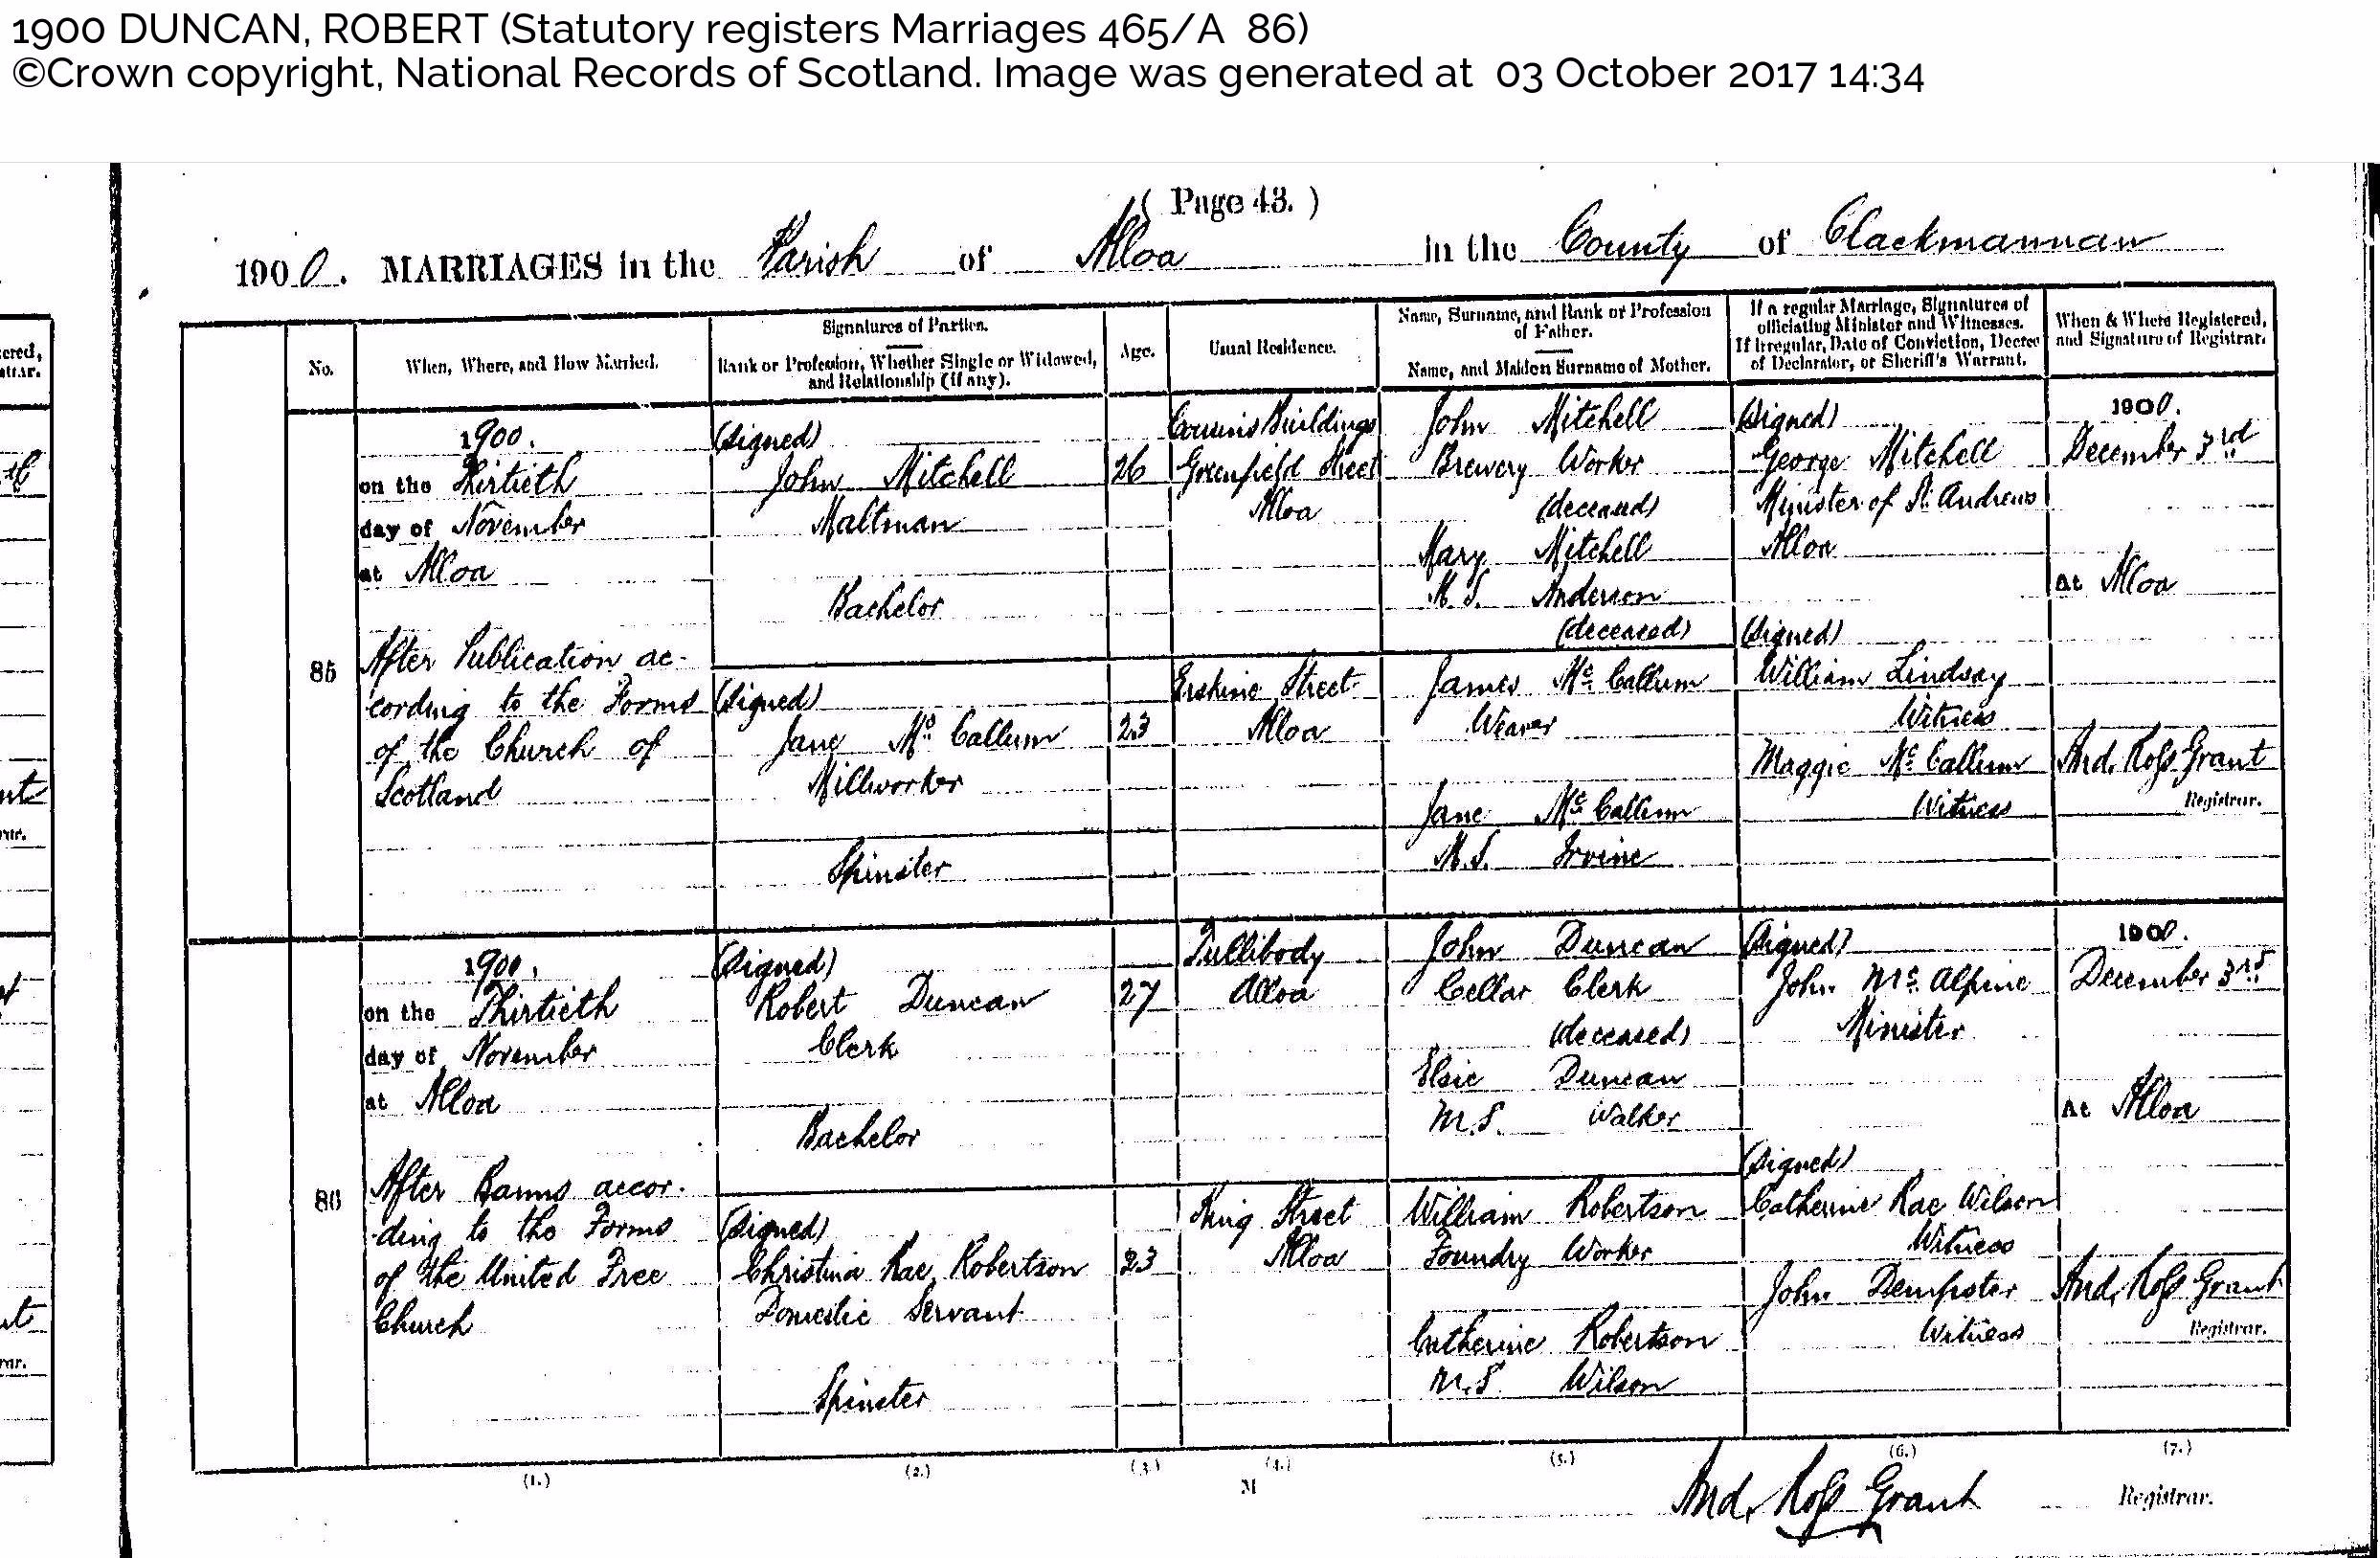 1900 DUNCAN, ROBERT (Statutory registers Marriages 465/A 86)
©Crown copyright, National Records of Scotland. Image was generated at 03 October 2017 14:34
( Page 43. )
1900. MARRIAGES in the Parish of Alloa in the County of Clackmannan
No.
When, Where, and How Married.
Signatures of Parties.
Rank or Profession, Whether Single or Widowed,
and Relationship (if any).
Age.
Usual Residence.
Name, Surname, and Rank or Profession
of Father.
Name, and Maiden Surname of Mother.
If a regular Marriage, Signatures of
officiating Minister and Witnesses.
If irregular, Date of Conviction, Decree
of Declarator, or Sheriff's Warrant.
When & Where Registered,
and Signature of Registrar.
85
1900.
on the Thirtieth
day of November
at Alloa
After Publication ac-
cording to the Forms
of the Church of
Scotland
(Signed)
John Mitchell
Maltman
Bachelor
(Signed)
Jane Mc Callum
Millworker
Spinster
26
23
Cousins Buildings
Greenfield Street
Alloa
Erskine Street
Alloa
John Mitchell
Brewery Worker
(deceased)
Mary Mitchell
M.S. Anderson
(deceased)
James Mc Callum
Weaver
Jane Mc Callum
M.S. Irvine
(Signed)
George Mitchell
Minister of St. Andrews
Alloa
(Signed)
William Lindsay
Witness
Maggie Mc Callum
Witness
1900.
December 3rd
At Alloa
And. Ross Grant
Registrar.
86
1900.
on the Thirtieth
day of November
at Alloa
After Banns accor-
-ding to the Forms
of the United Free
Church
(Signed)
Robert Duncan
Clerk
Bachelor
(Signed)
Christina Rae Robertson
Domestic Servant
Spinster
27
23
Tullibody
Alloa
King Street
Alloa
John Duncan
Cellar Clerk
(deceased)
Elsie Duncan
M.S. Walker
William Robertson
Foundry Worker
Catherine Robertson
M.S. Wilson
(Signed)
John Mc Alpine
Minister
(Signed)
Catherine Rae Wilson
Witness
John Dempster
Witness
1900.
December 3rd
At Alloa
And. Ross Grant
Registrar.
(1.) (2.) (3.) (4.) (5.) (6.) (7.)
M
And. Ross Grant Registrar.